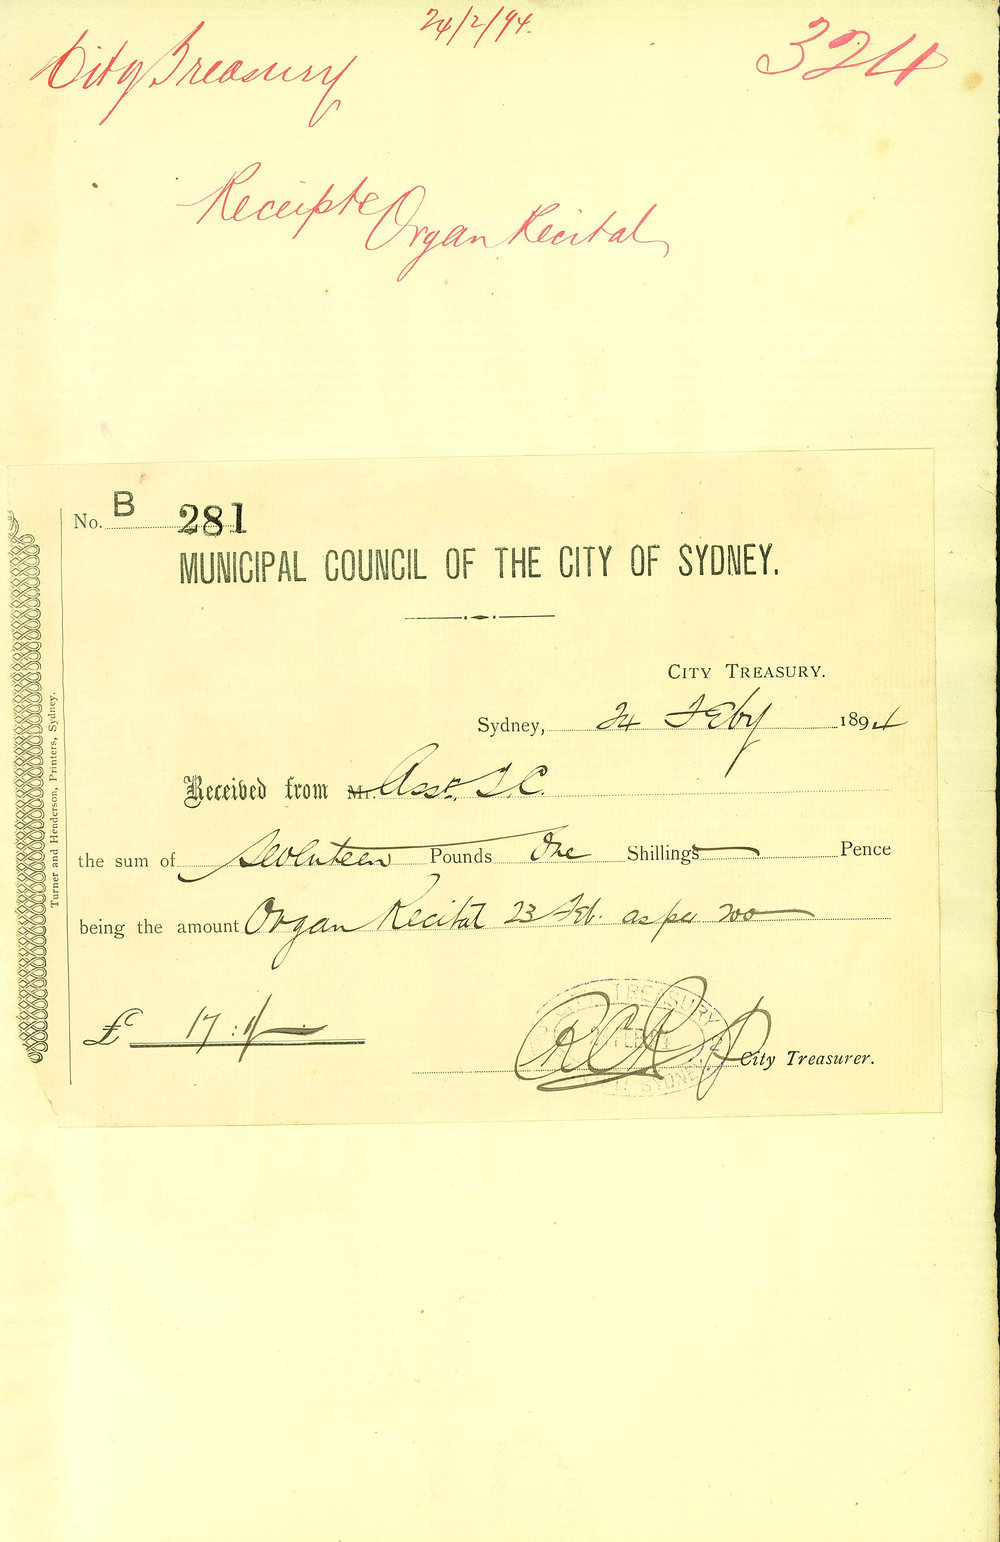 24/2/94.
City Treasury
324
Receipts Organ Recital
No. B 281
MUNICIPAL COUNCIL OF THE CITY OF SYDNEY.
CITY TREASURY.
Sydney, 24 Feby 1894
Received from Mr. Asst. T.C.
the sum of Seventeen Pounds One Shillings — Pence
being the amount Organ Recital 23 Feb. as per
£ 17 : 1/ —
City Treasurer.
TREASURY
SYDNEY
Turner and Henderson, Printers, Sydney.